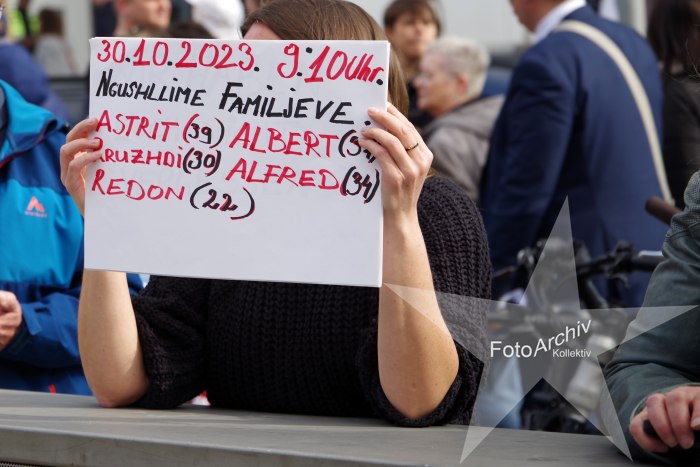 30.10.2023. 9:10 Uhr.
NGUSHLLIME FAMILJEVE.
ASTRIT (39) ALBERT
RUZHDI (30) ALFRED (34)
REDON (22)
FotoArchiv
Kollektiv